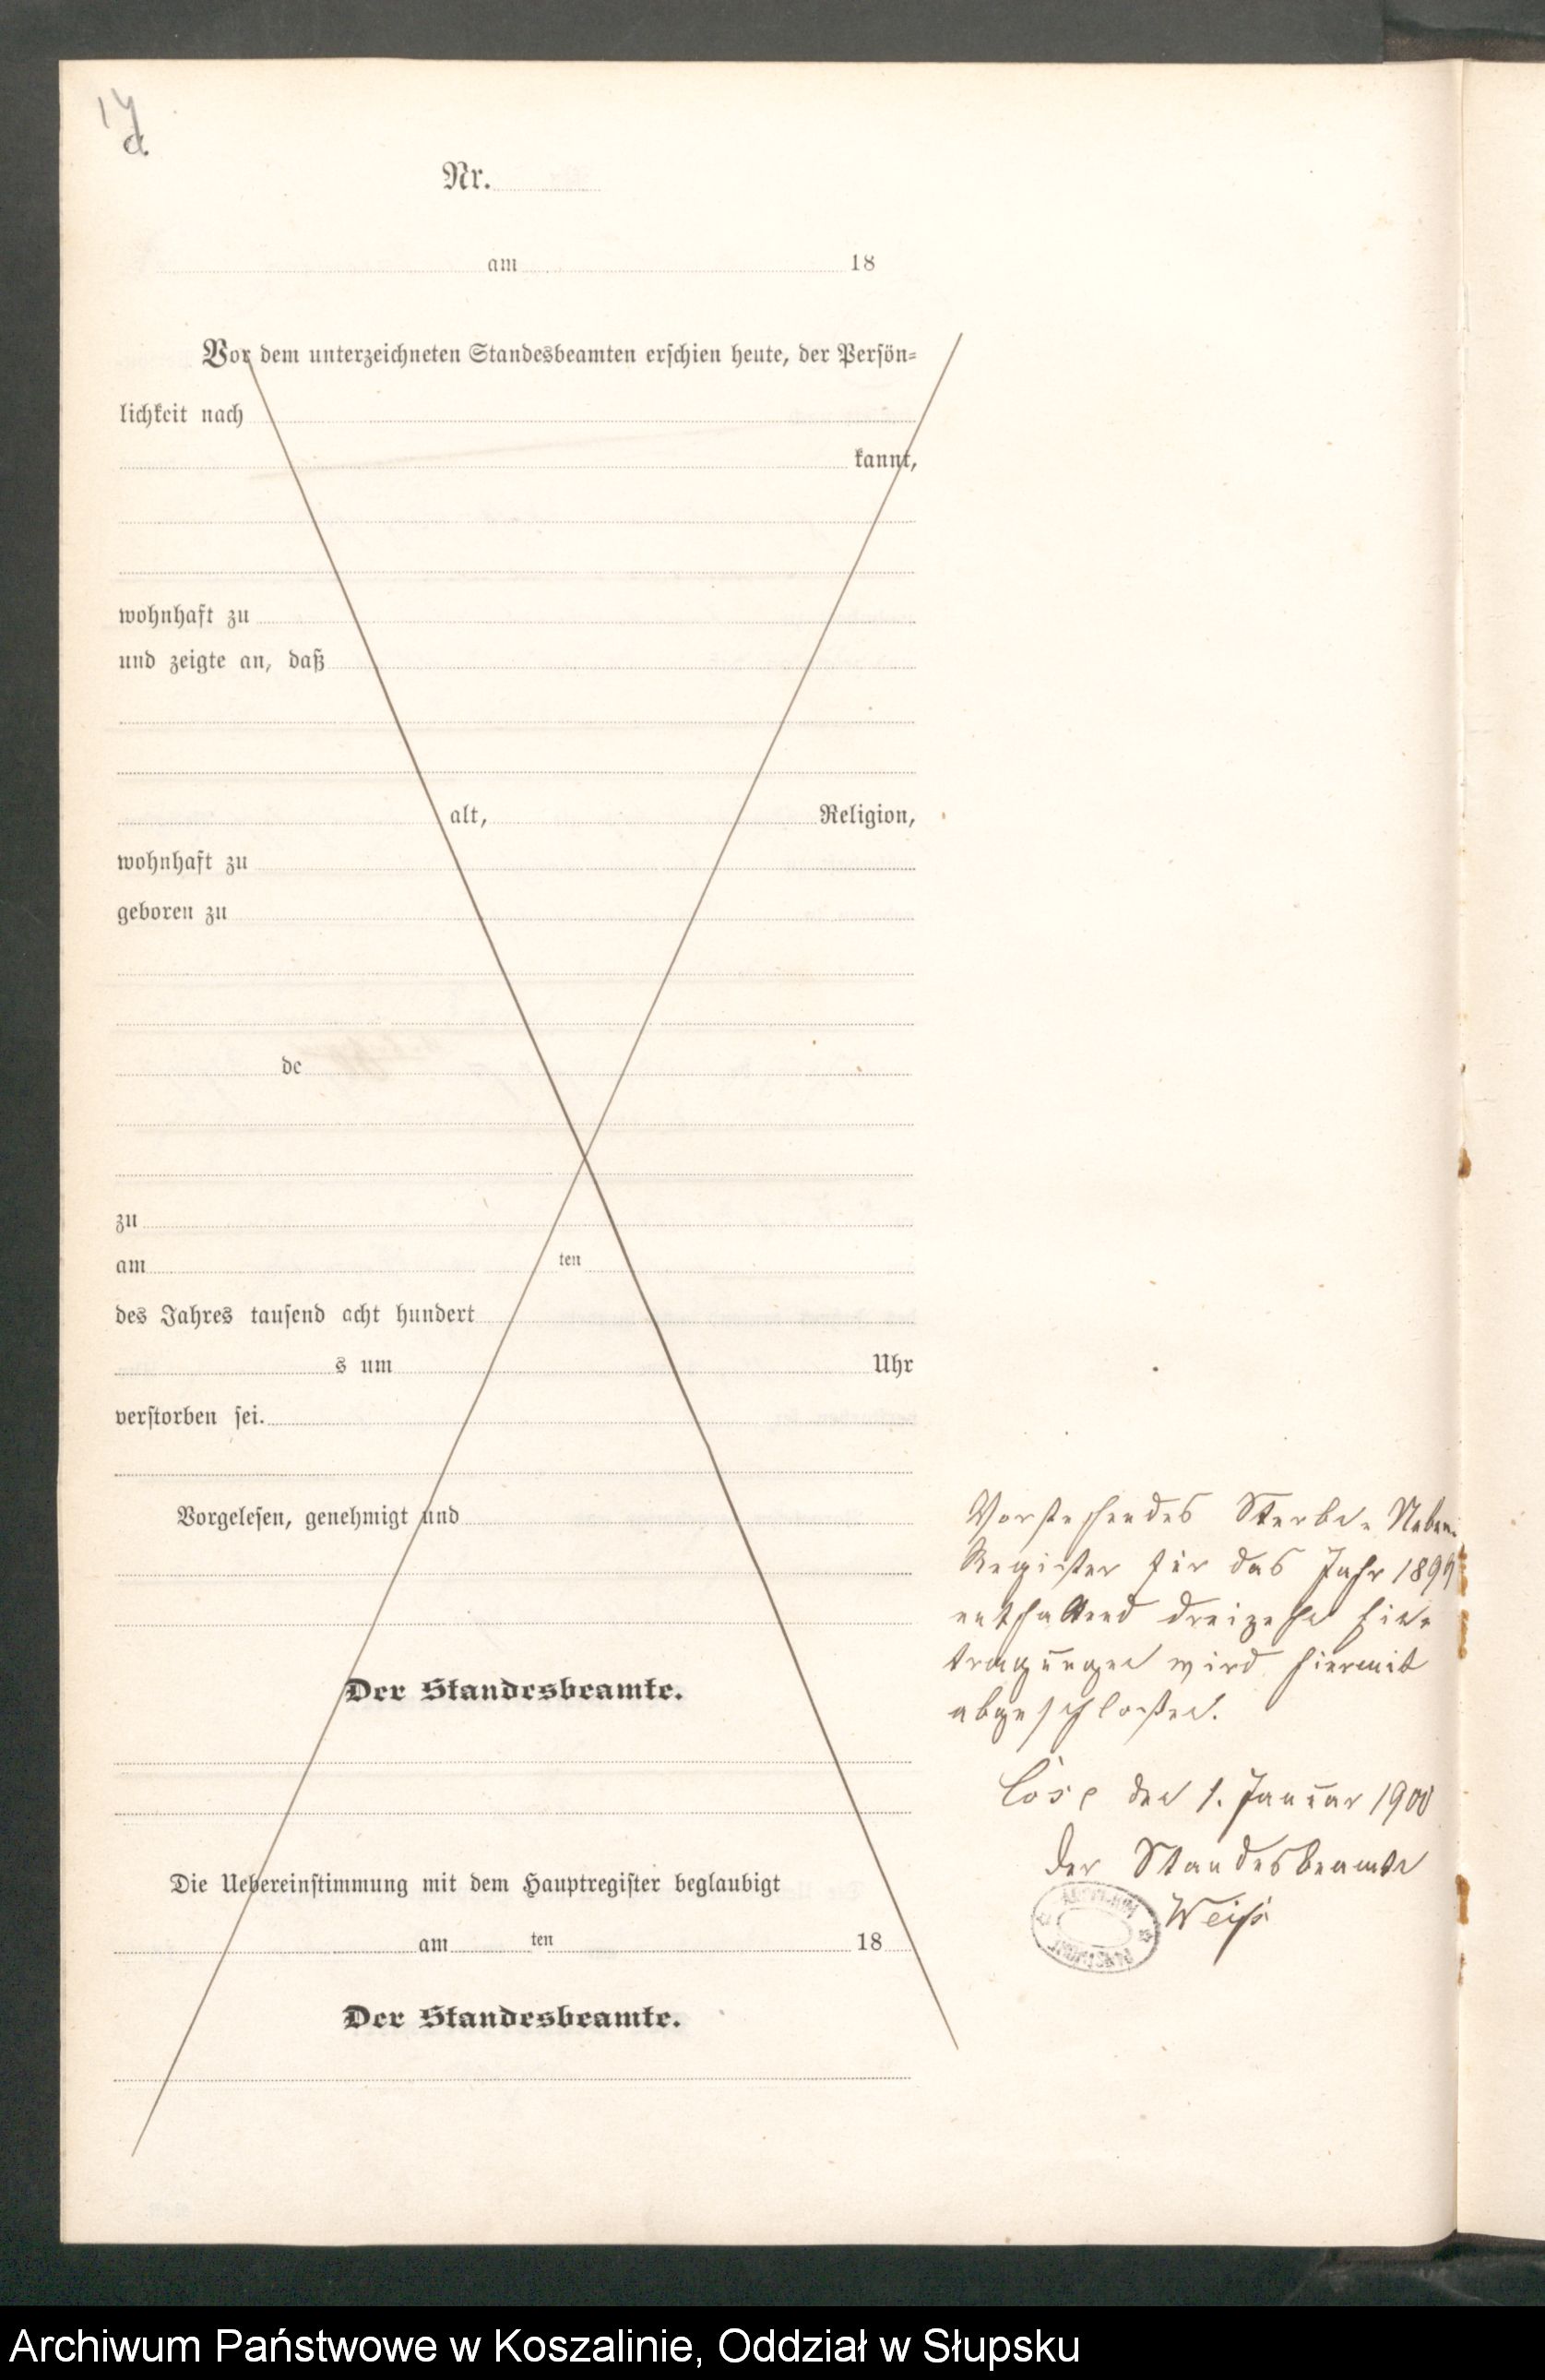 14
d.
Nr.
am 18
Vor dem unterzeichneten Standesbeamten erschien heute, der Persön=
lichkeit nach
kannt,
wohnhaft zu
und zeigte an, daß
alt, Religion,
wohnhaft zu
geboren zu
de
zu
am ten
des Jahres tausend acht hundert
s um Uhr
verstorben sei.
Vorgelesen, genehmigt und
Der Standesbeamte.
Die Uebereinstimmung mit dem Hauptregister beglaubigt
am ten 18
Der Standesbeamte.
Vorstehendes Sterbe-Neben-
Register für das Jahr 1899
enthaltend dreizehn Ein-
tragungen wird hiermit
abgeschlossen.
Cöse den 1. Januar 1900
Der Standesbeamte
Weiß
Archiwum Państwowe w Koszalinie, Oddział w Słupsku